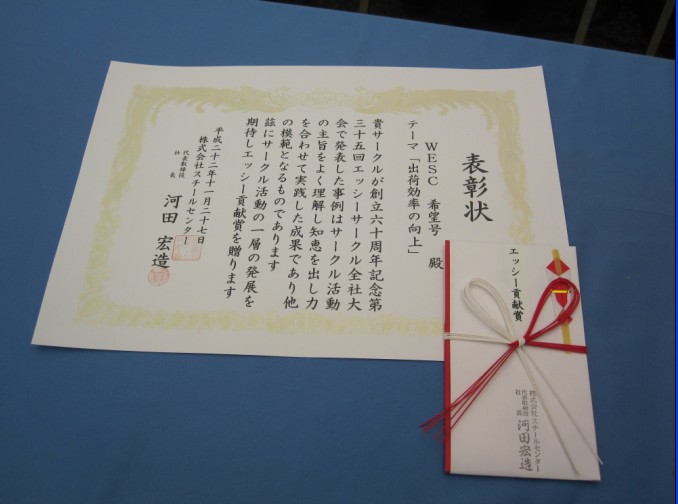 表彰状
WESC 希望号 殿
テーマ「出荷効率の向上」
貴サークルが創立六十周年記念第
三十五回エッシーサークル全社大
会で発表した事例はサークル活動
の主旨をよく理解し知恵を出し力
を合わせて実践した成果であり他
の模範となるものであります
茲にサークル活動の一層の発展を
期待しエッシー貢献賞を贈ります
平成二十二年十一月二十七日
株式会社スチールセンター
代表取締役
社長
河田宏造
エッシー貢献賞
株式会社スチールセンター
代表取締役
社長
河田宏造